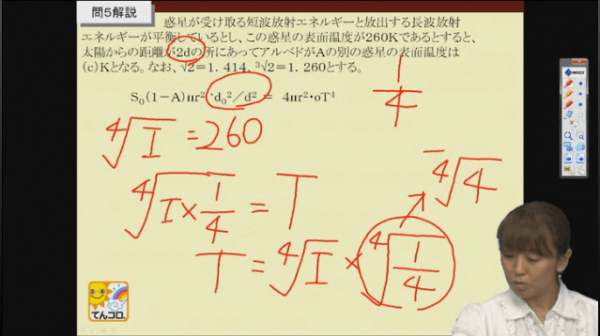 問5解説
惑星が受け取る短波放射エネルギーと放出する長波放射
エネルギーが平衡しているとし、この惑星の表面温度が260Kであるとすると、
太陽からの距離が2dの所にあってアルベドがAの別の惑星の表面温度は
(c)Kとなる。なお、√2=1.414、³√2=1.260とする。
S₀(1-A)πr²・d₀²/d² = 4πr²・σT⁴
1/4
⁴√I = 260
⁴√4
⁴√(I×1/4) = T
T = ⁴√I × ⁴√(1/4)
てんコロ.